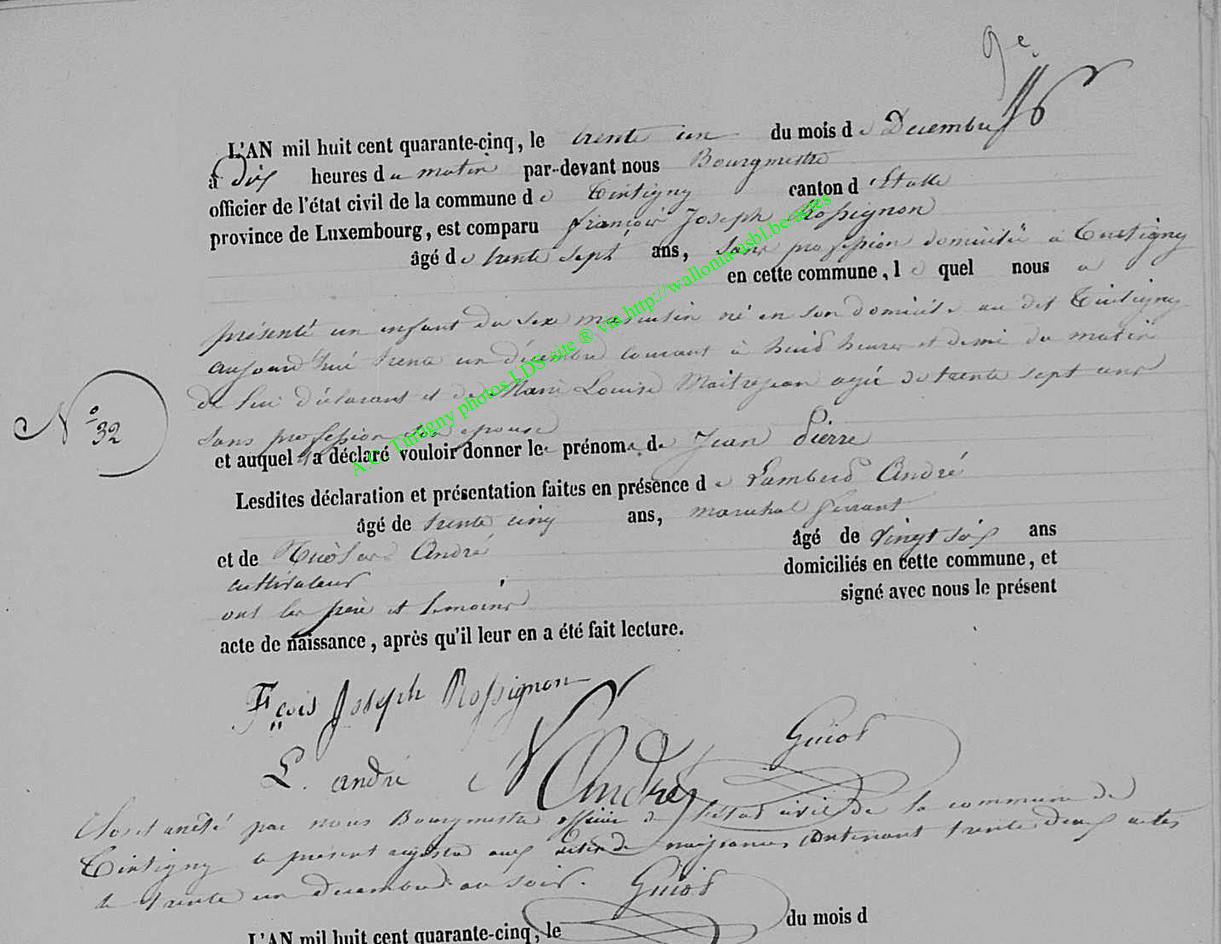 9e.
L'AN mil huit cent quarante-cinq, le trente un du mois de Decembre
à Dix heures du matin par-devant nous Bourgmestre
officier de l'état civil de la commune de Tintigny canton d'Etalle
province de Luxembourg, est comparu françois Joseph Rossignon
âgé de trente sept ans, sans profession domicilié à Tintigny
en cette commune, le quel nous a
présenté un enfant du sexe masculin né en son domicile au dit Tintigny
aujourd'hui trente un décembre courant à huit heures et demi du matin
de lui déclarant et de Marie Louise Maitrejean agée de trente sept ans
sans profession son épouse
N° 32
et auquel il a déclaré vouloir donner le prénom de Jean Pierre
Lesdites déclaration et présentation faites en présence de Lambert André
âgé de trente cinq ans, marechal ferrant
et de Nicolas André âgé de vingt six ans
cultivateur domiciliés en cette commune, et
ont les père et témoins signé avec nous le présent
acte de naissance, après qu'il leur en a été fait lecture.
Fçois Joseph Rossignon
L. andré N André Guiot
Clos et arrêté par nous Bourgmestre officier de l'état civil de la commune de
Tintigny le présent registre aux actes de naissances contenant trente deux actes
le trente un decembre au soir. Guiot
L'AN mil huit cent quarante-cinq, le du mois d
A.C. Tintigny photos LDS site ® via http://wallonia-asbl.be/actes